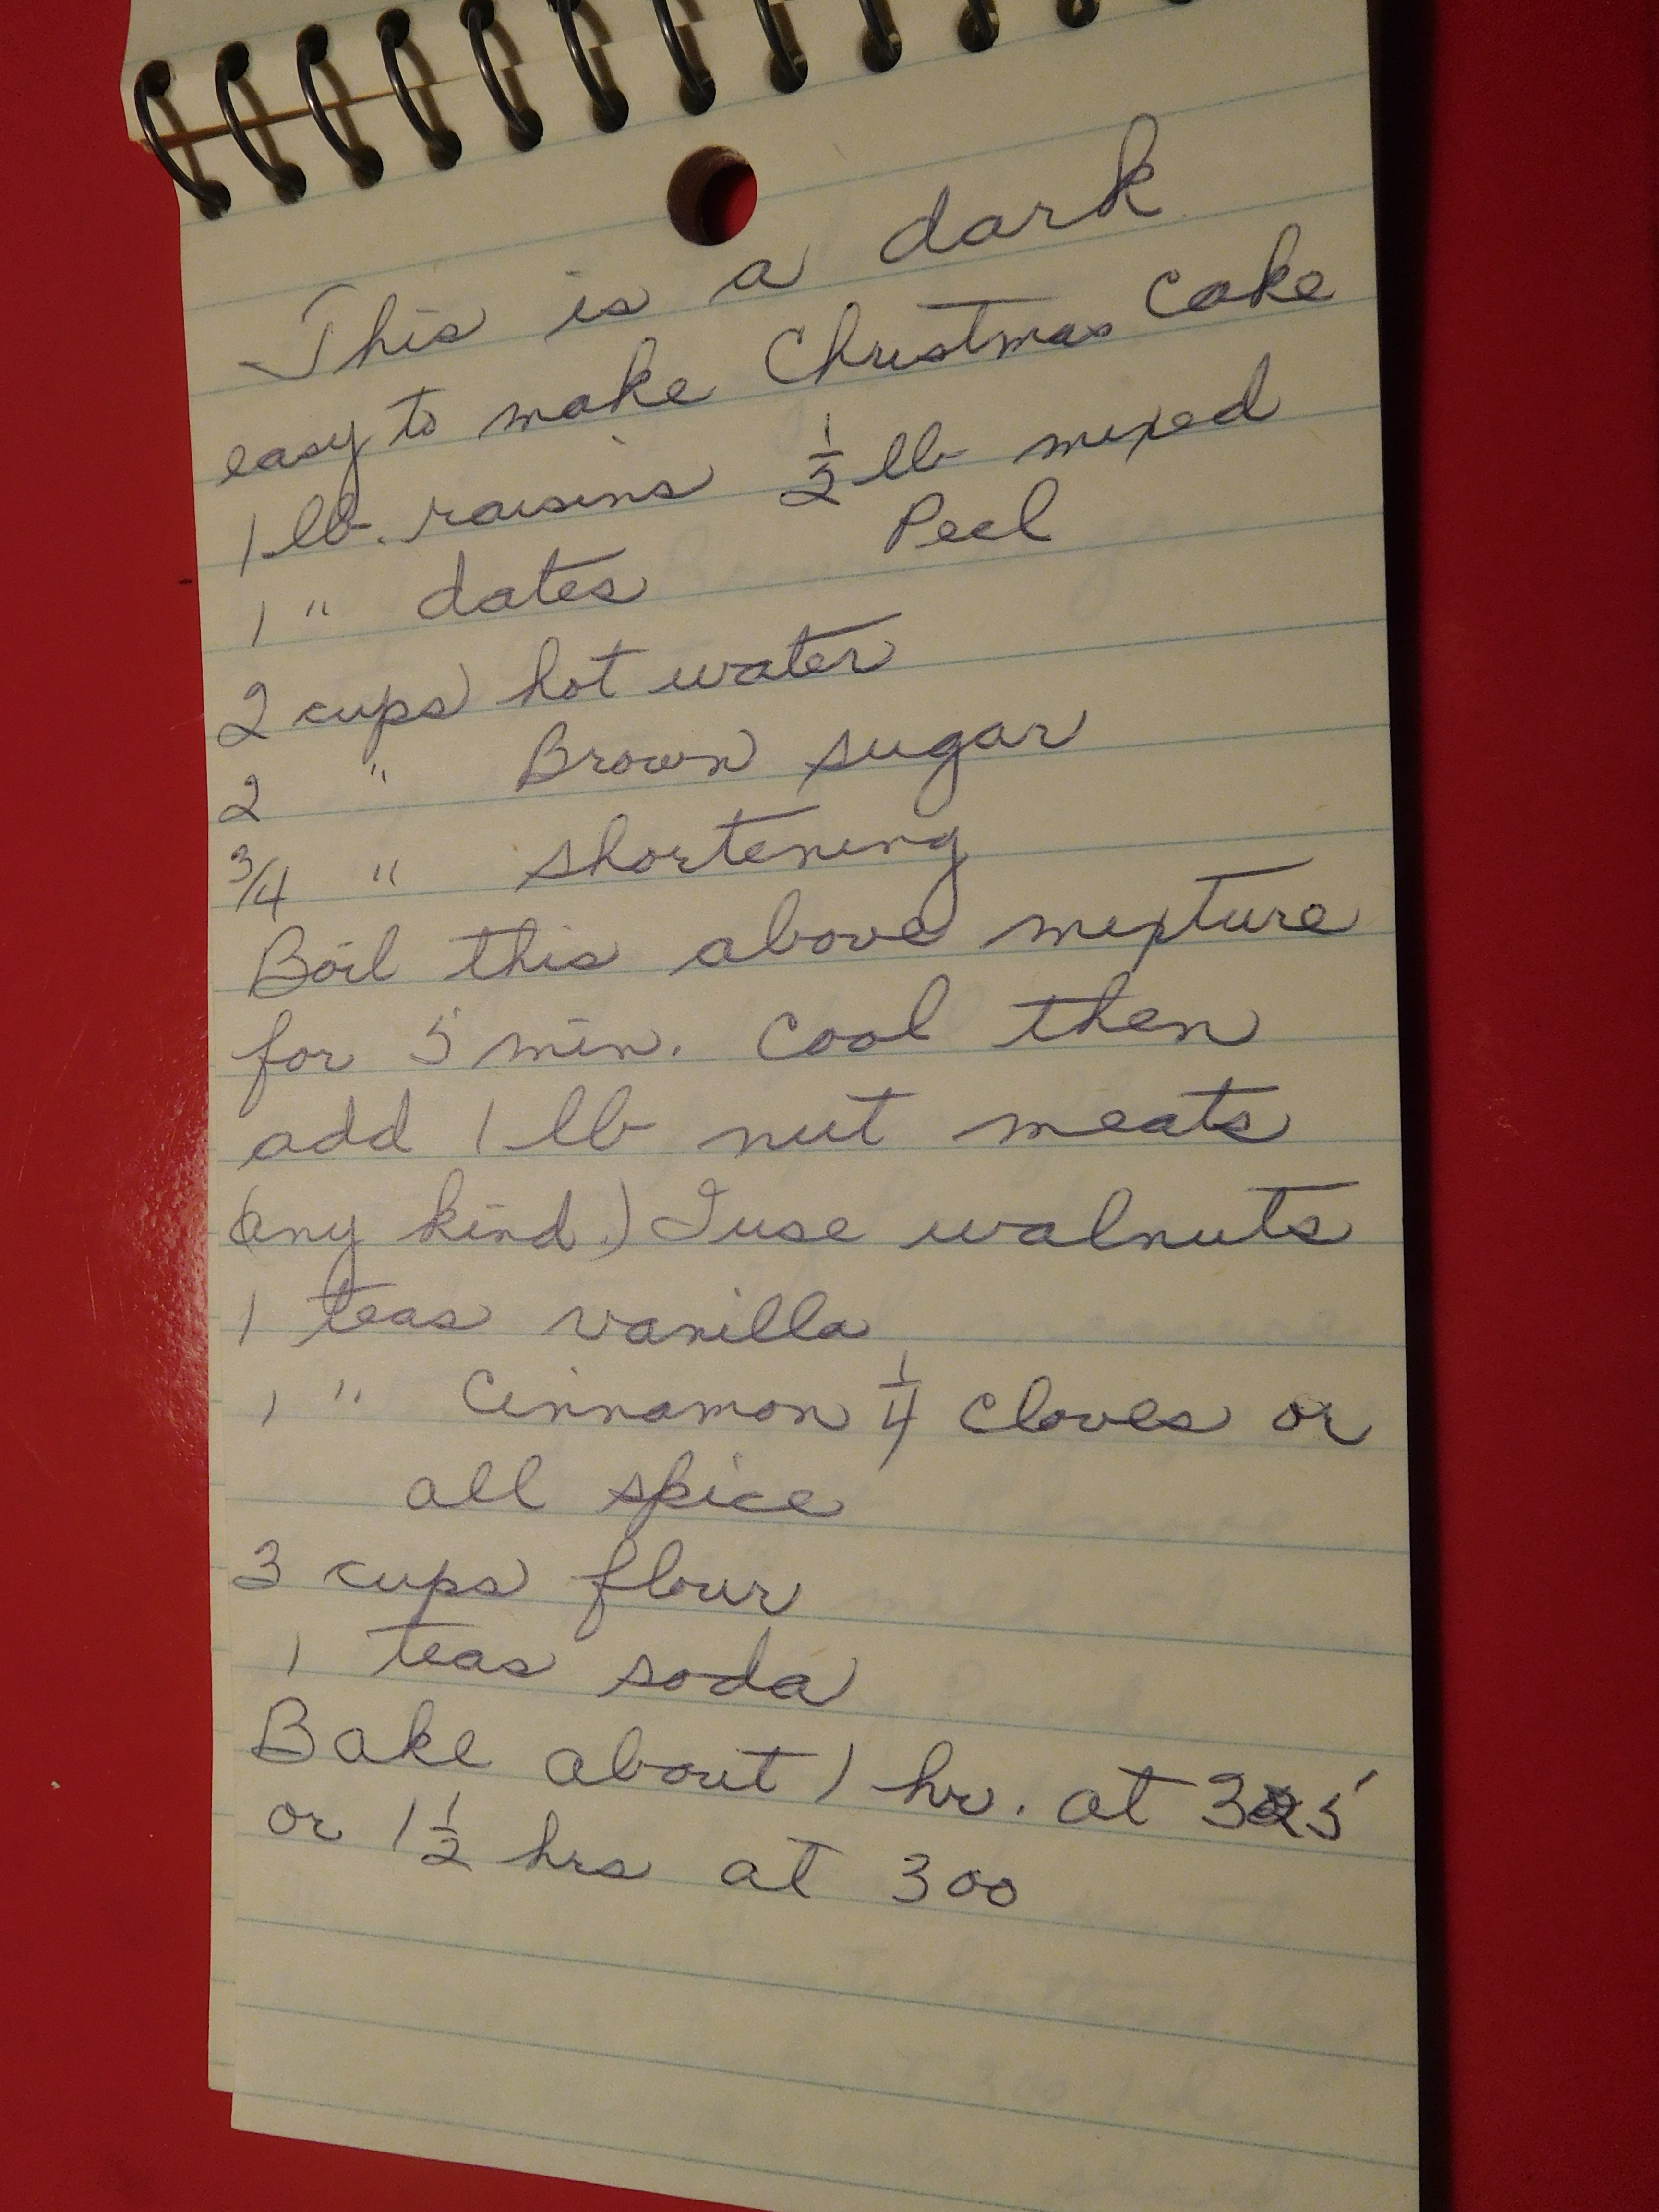 This is a dark
easy to make Christmas Cake
1 lb. raisins ½ lb mixed
Peel
1 " dates
2 cups hot water
2 " Brown sugar
3/4 " shortening
Boil this above mixture
for 5 min. Cool then
add 1 lb nut meats
(any kind.) I use walnuts
1 teas vanilla
1 " Cinnamon ¼ cloves or
all spice
3 cups flour
1 teas soda
Bake about 1 hr. at 325
or 1½ hrs at 300